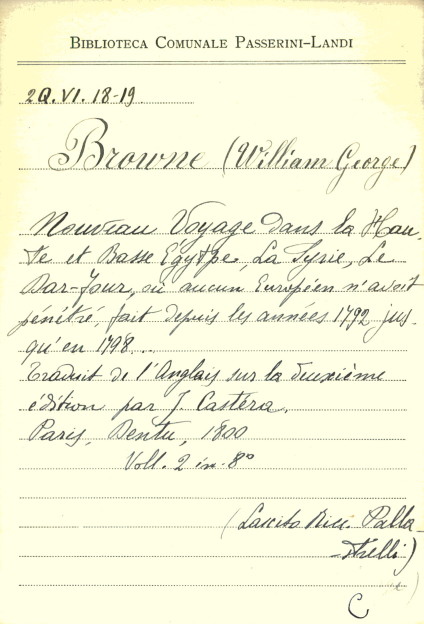 BIBLIOTECA COMUNALE PASSERINI-LANDI
2Q.VI.18-19
Browne (William George)
Nouveau Voyage dans la Hau-
te et Basse Egytpe, La Syrie, Le
Dar-four, où aucun Européen n'avait
pénétré, fait depuis les années 1792 jus
qu'en 1798...
Traduit de l'Anglais sur la deuxième
édition par J. Castéra.
Paris, Dentu, 1800
Voll. 2 in-8°
(Lascito Ricci Palla-
-strelli)
C